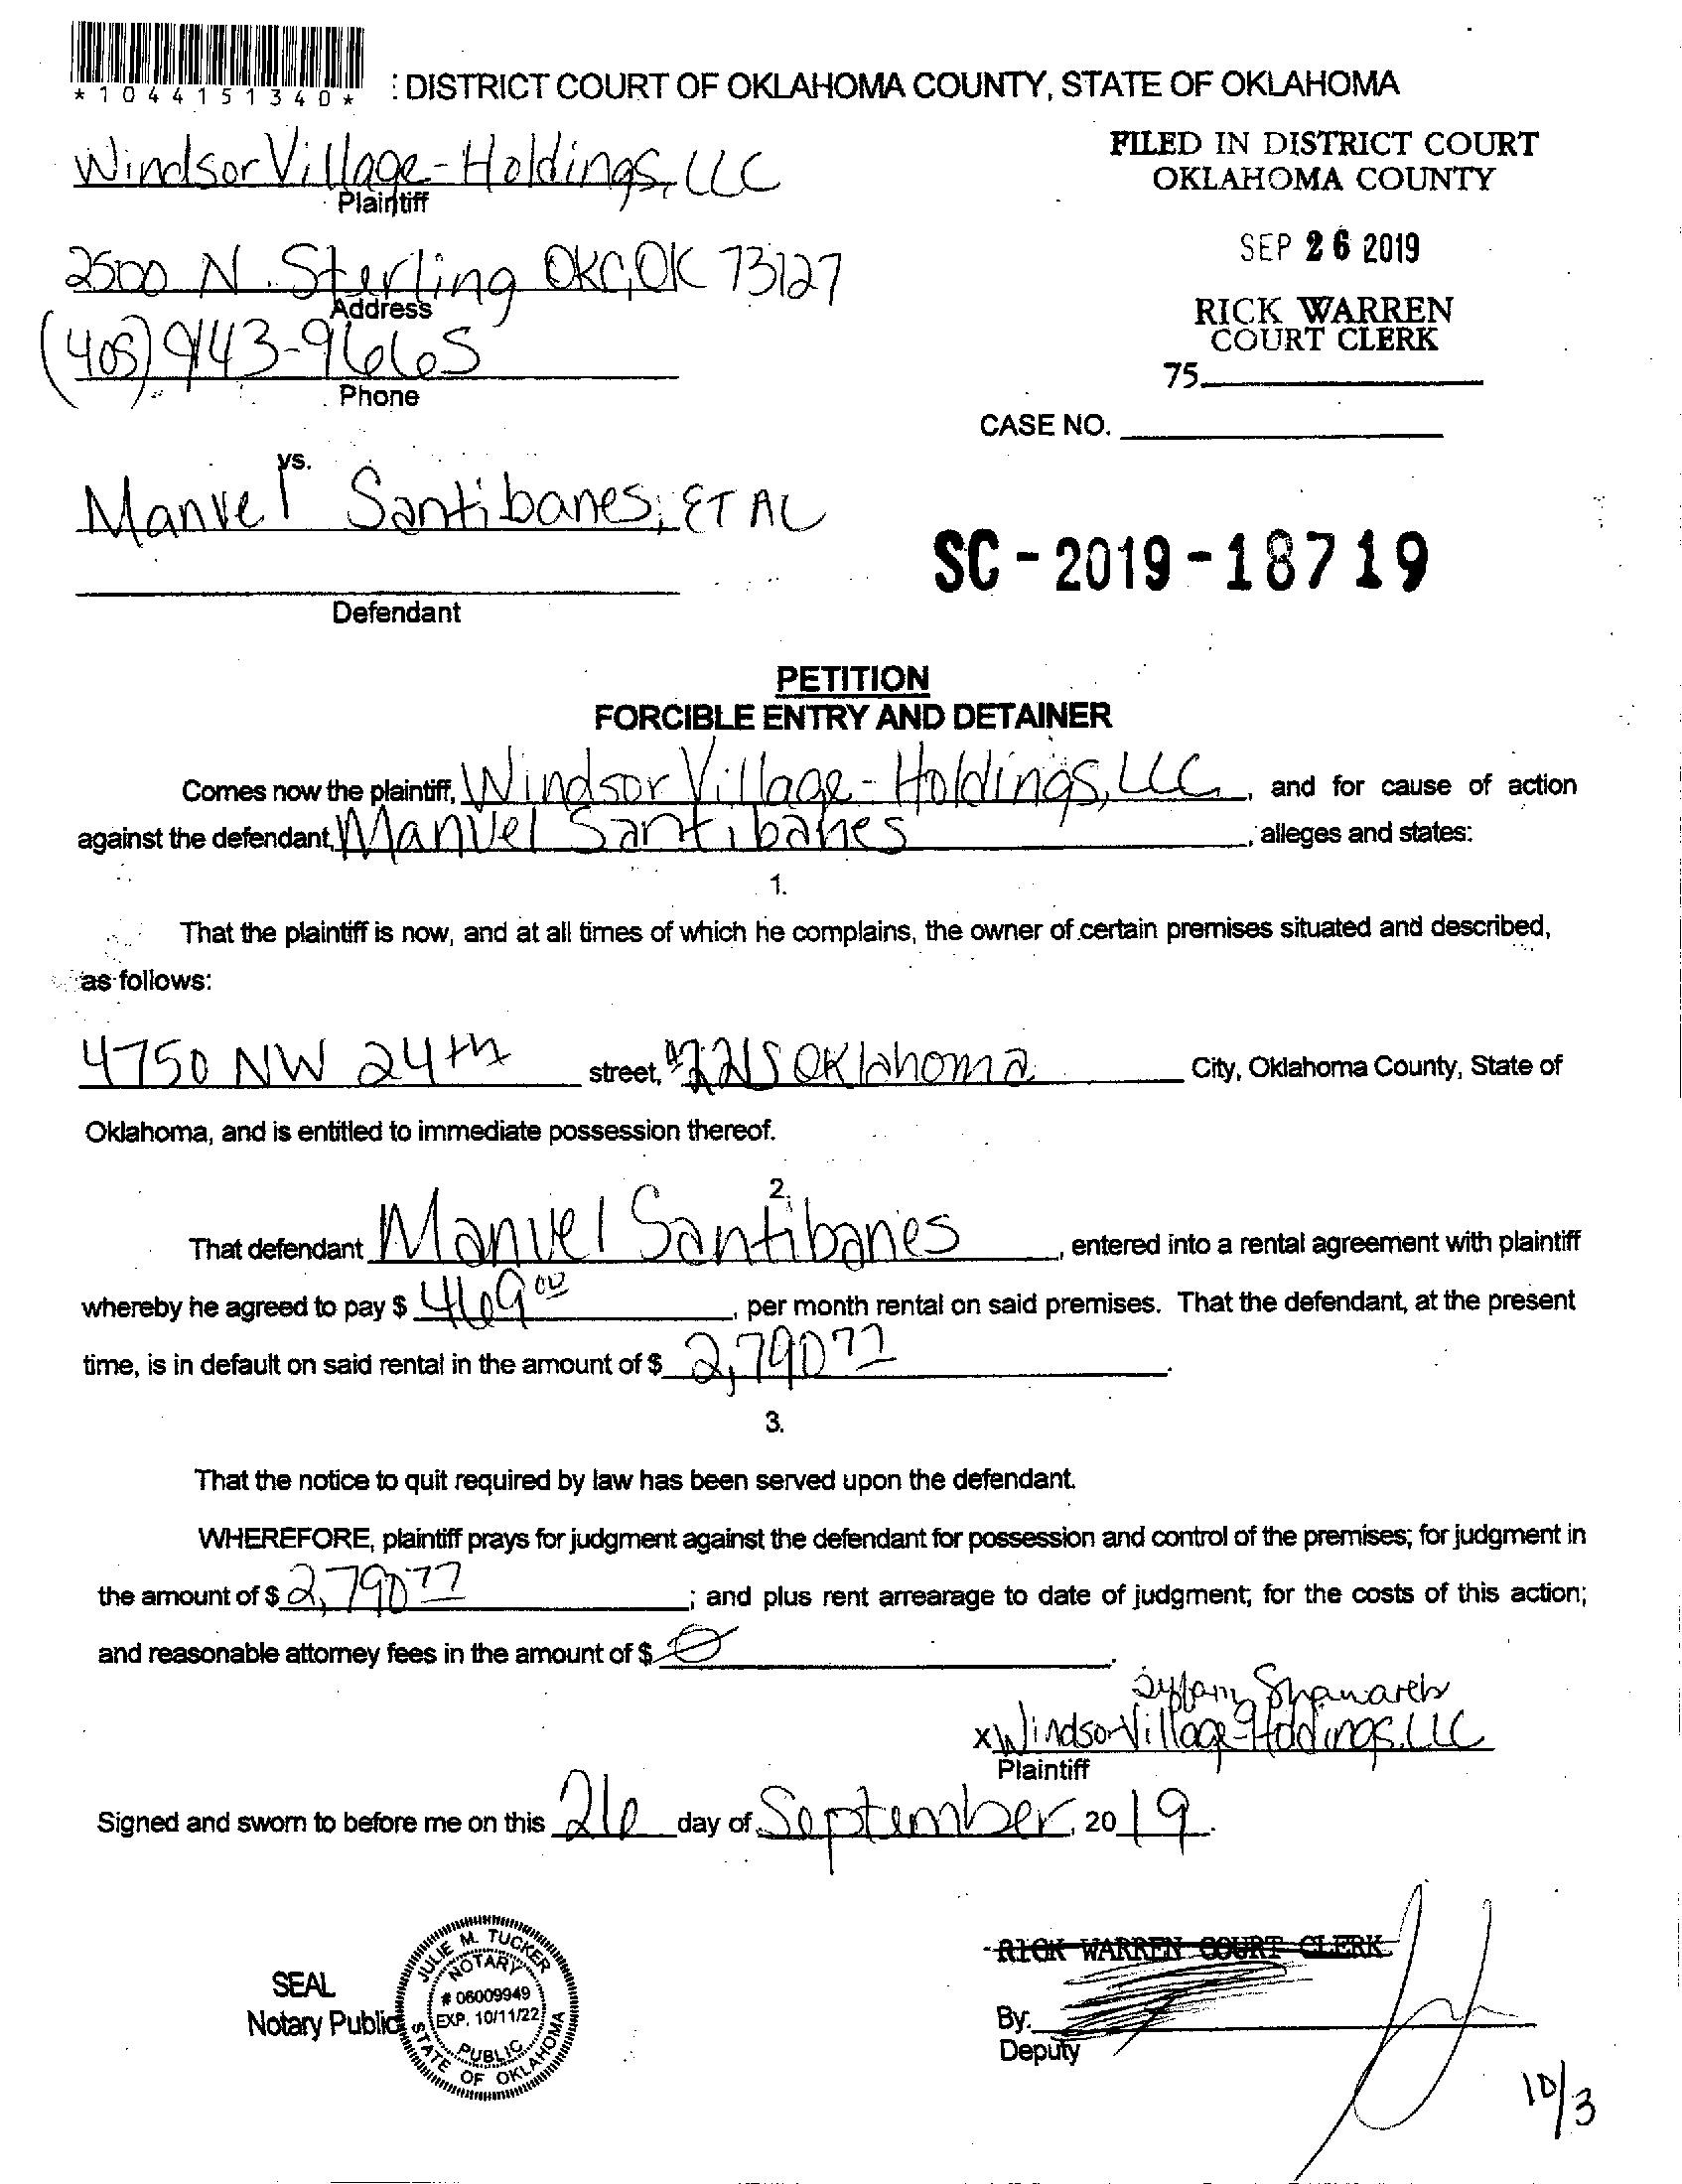 *1044151340*
: DISTRICT COURT OF OKLAHOMA COUNTY, STATE OF OKLAHOMA
Windsor Village-Holdings, LLC
Plaintiff
FILED IN DISTRICT COURT
OKLAHOMA COUNTY
2500 N. Sterling OKC, OK 73127
Address
SEP 26 2019
(405) 943-9665
Phone
RICK WARREN
COURT CLERK
75.
CASE NO.
vs.
Manuel Santibanes, ET AL
Defendant
SC-2019-18719
PETITION
FORCIBLE ENTRY AND DETAINER
Comes now the plaintiff, Windsor Village-Holdings, LLC, and for cause of action
against the defendant, Manuel Santibanes, alleges and states:
1.
That the plaintiff is now, and at all times of which he complains, the owner of certain premises situated and described,
as follows:
4750 NW 24th street, #225 Oklahoma City, Oklahoma County, State of
Oklahoma, and is entitled to immediate possession thereof.
2.
That defendant Manuel Santibanes, entered into a rental agreement with plaintiff
whereby he agreed to pay $ 469 00, per month rental on said premises. That the defendant, at the present
time, is in default on said rental in the amount of $ 2,790 77.
3.
That the notice to quit required by law has been served upon the defendant.
WHEREFORE, plaintiff prays for judgment against the defendant for possession and control of the premises; for judgment in
the amount of $ 2,790 77; and plus rent arrearage to date of judgment; for the costs of this action;
and reasonable attorney fees in the amount of $ 0.
x Windsor Village-Holdings, LLC
Plaintiff
Signed and sworn to before me on this 26 day of September, 2019.
SEAL
Notary Public
JULIE M. TUCKER
NOTARY
# 06009949
EXP. 10/11/22
PUBLIC
STATE OF OKLAHOMA
RICK WARREN COURT CLERK
By:
Deputy
10/3